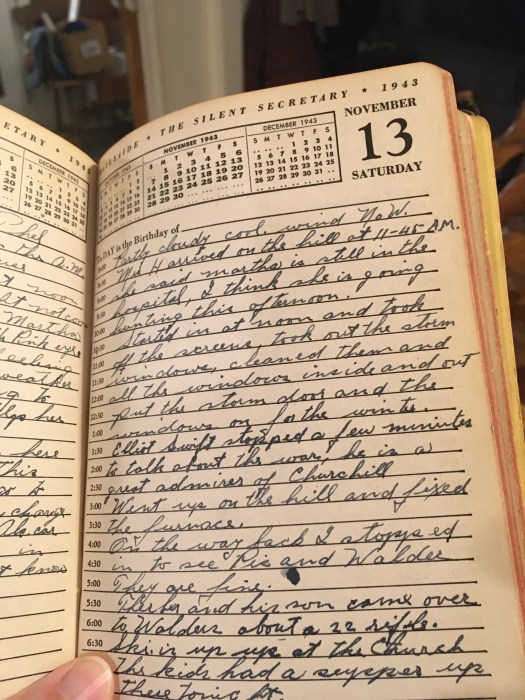 ETARY * 194
DECEMBER 1943
the A.M.
noon
Martha
Pink eye
feeling
to
help her
here
this
to
charge
car
in
know
* THE SILENT SECRETARY * 1943
NOVEMBER 1943
S M T W T F S
1 2 3 4 5 6
7 8 9 10 11 12 13
14 15 16 17 18 19 20
21 22 23 24 25 26 27
28 29 30
DECEMBER 1943
S M T W T F S
1 2 3 4
5 6 7 8 9 10 11
12 13 14 15 16 17 18
19 20 21 22 23 24 25
26 27 28 29 30 31
NOVEMBER
13
SATURDAY
To-DAY is the Birthday of
Partly cloudy cool. wind N.W.
9:00 Mrs H arrived on the hill at 11-45 A.M.
she said martha is still in the
hospital, I think she is going
hunting this afternoon.
10:30 Started in at noon and took
off the screens, took out the storm
11:30 windows, cleaned them and
12:00 all the windows inside and out
12:30 put the storm door and the
1:00 windows on for the winter.
1:30 Elliot Swift stopped a few minutes
2:00 to talk about the war, he is a
2:30 great admirer of Churchill
3:00 Went up on the hill and fixed
3:30 the furnace.
4:00 On the way back I stopped
4:30 in to see Pic and Walder
5:00 They are fine.
5:30 and his son came over
6:00 to Walders about a 22 rifle.
6:30 is up up at the Church
The kids had a supper up
there